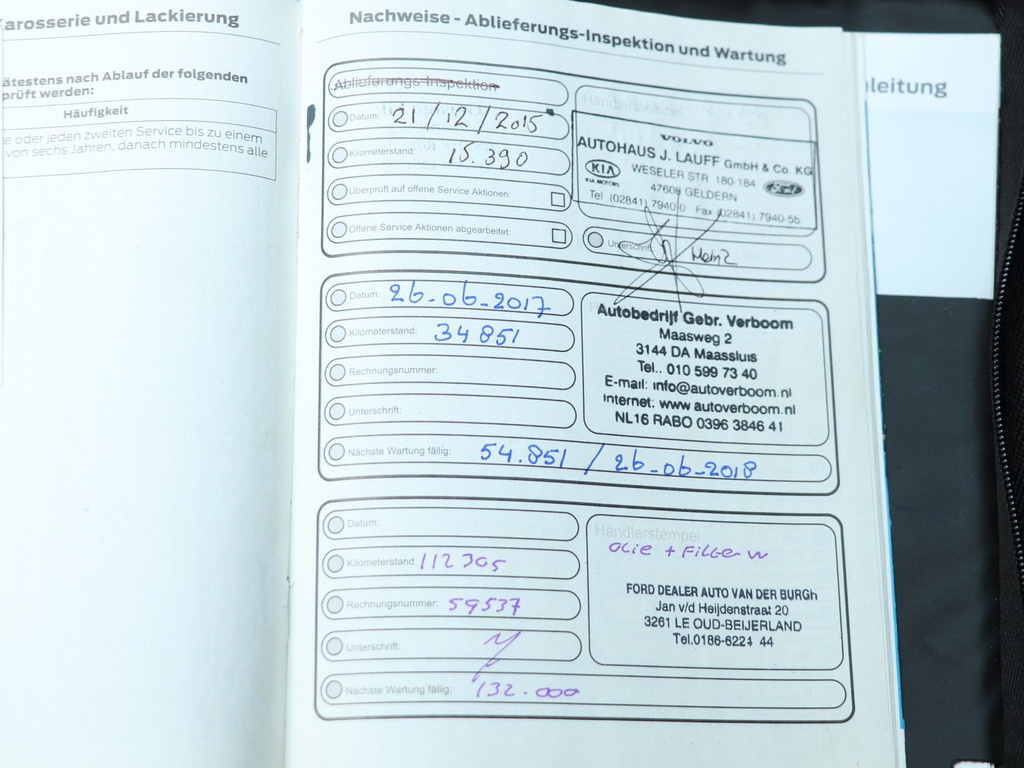 Karosserie und Lackierung
ätestens nach Ablauf der folgenden
prüft werden:
Häufigkeit
e oder jeden zweiten Service bis zu einem
von sechs Jahren, danach mindestens alle
Nachweise - Ablieferungs-Inspektion und Wartung
Ablieferungs-Inspektion
Datum: 21/12/2015
Kilometerstand: 15.390
Überprüft auf offene Service Aktionen:
Offene Service Aktionen abgearbeitet:
Händlerstempel
VOLVO
AUTOHAUS J. LAUFF GmbH & Co. KG
KIA
KIA MOTORS
WESELER STR. 180-184
Ford
47608 GELDERN
Tel (02841) 7940-0 Fax (02841) 7940-55
Unterschrift:
Datum: 26-06-2017
Kilometerstand: 34851
Rechnungsnummer:
Unterschrift:
Autobedrijf Gebr. Verboom
Maasweg 2
3144 DA Maassluis
Tel.. 010 599 73 40
E-mail: info@autoverboom.nl
Internet: www autoverboom.nl
NL16 RABO 0396 3846 41
Nächste Wartung fällig: 54.851 / 26-06-2018
Datum:
Kilometerstand: 112305
Rechnungsnummer: 59537
Unterschrift:
Händlerstempel
olie + Filter
FORD DEALER AUTO VAN DER BURGh
Jan v/d Heijdenstraat 20
3261 LE OUD-BEIJERLAND
Tel.0186-6224 44
Nächste Wartung fällig: 132.000
leitung